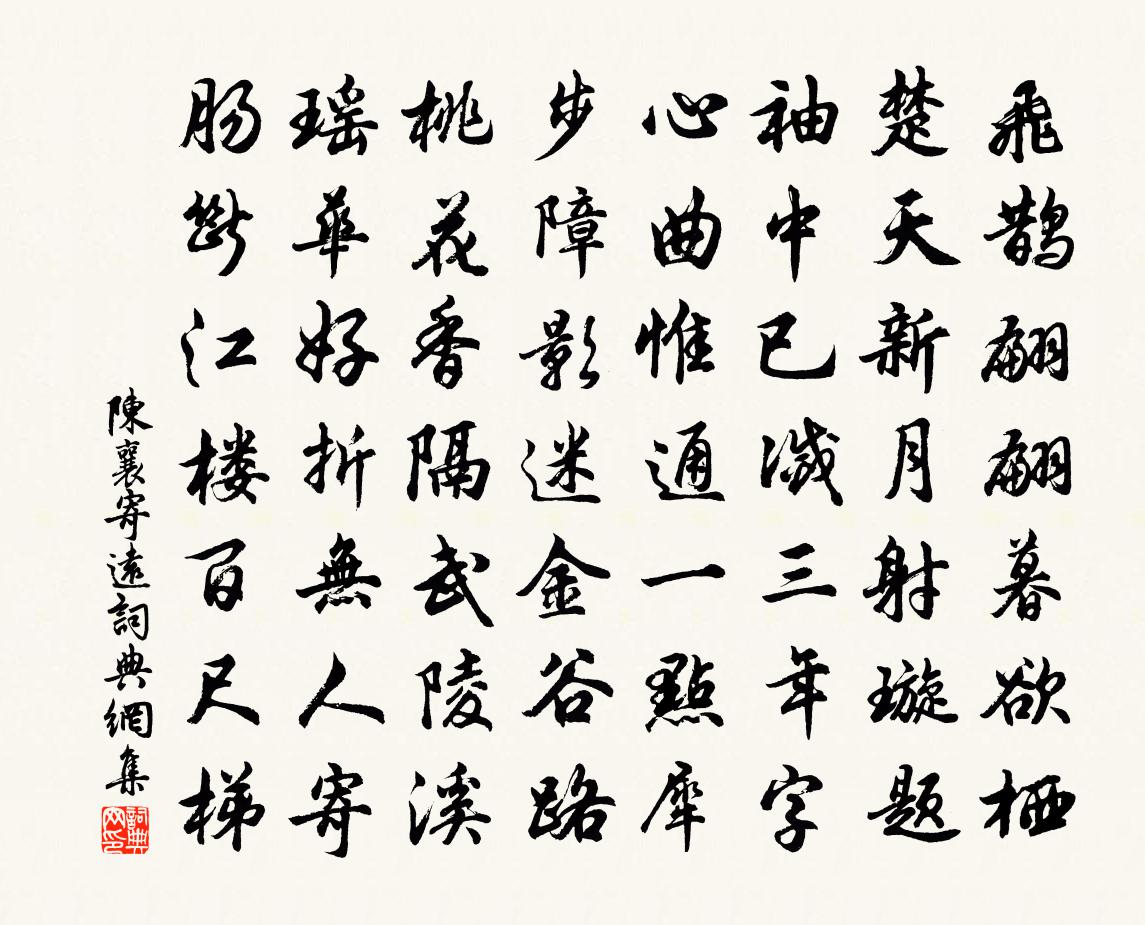 飛鵲翩翩暮欲栖
楚天新月射璇題
袖中已滅三年字
心曲惟通一點犀
步障影迷金谷路
桃花香隔武陵溪
瑶華好折無人寄
腸斷江楼百尺梯
陳襄寄遠詞典網集
詞典網印